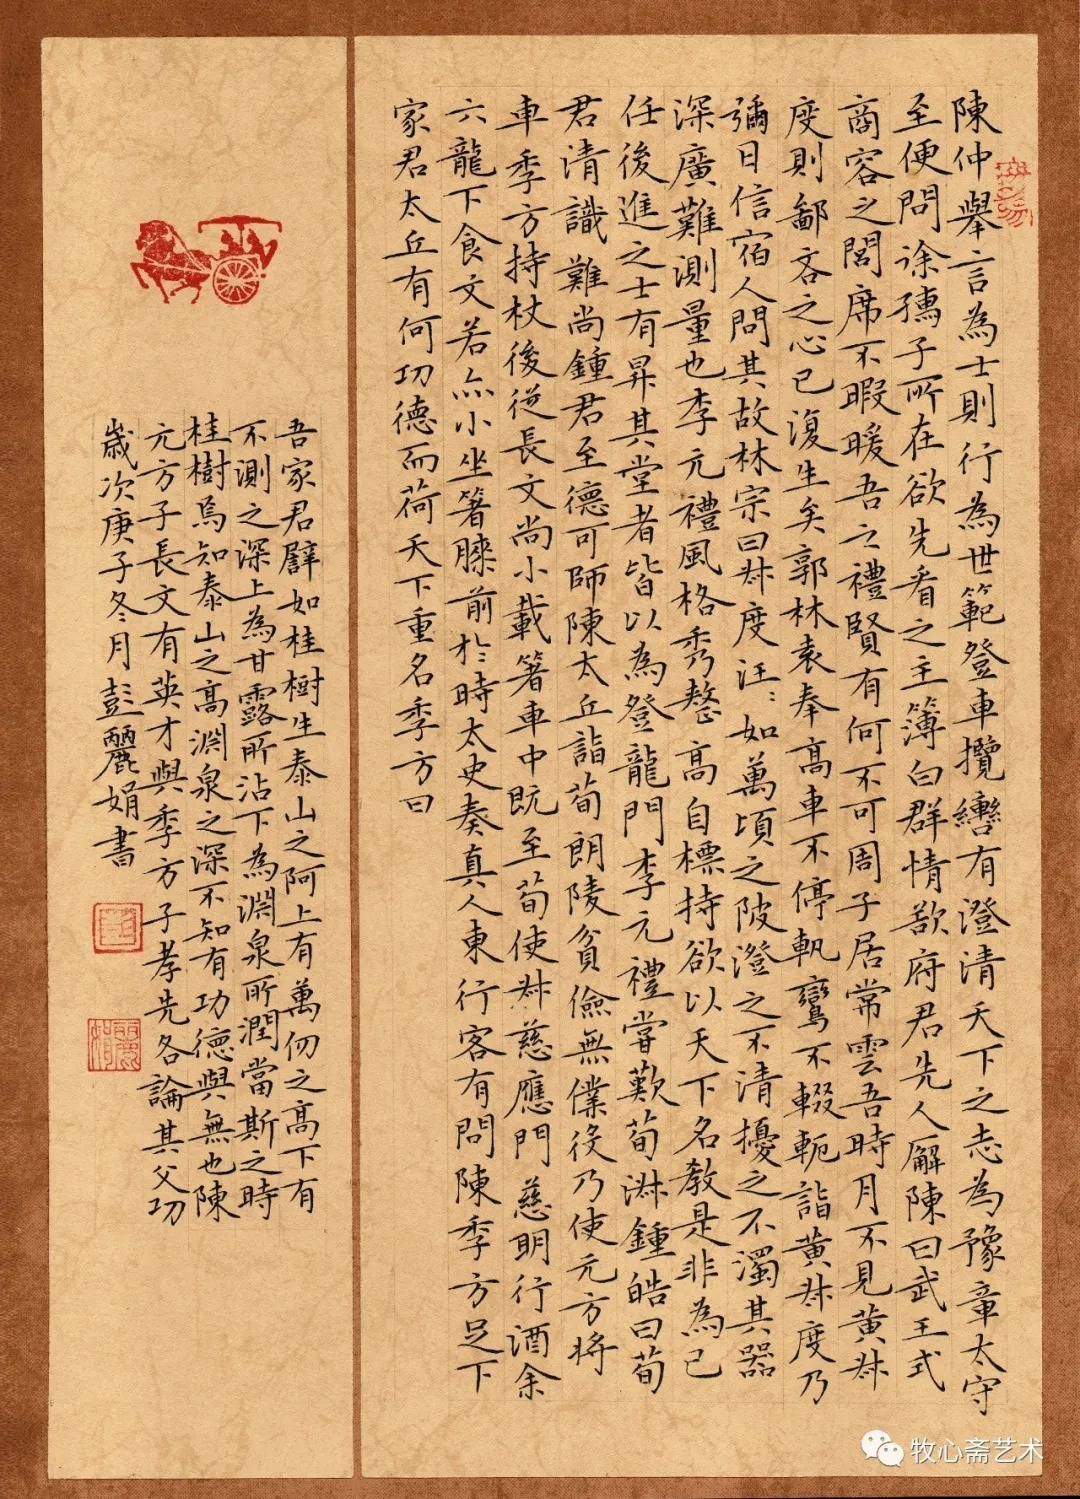 陳仲舉言為士則行為世範登車攬轡有澄清天下之志為豫章太守
至便問徐孺子所在欲先看之主簿白群情欲府君先入廨陳曰武王式
商容之閭席不暇暖吾之禮賢有何不可周子居常雲吾時月不見黄叔
度則鄙吝之心已復生矣郭林袁奉高車不停軌鸞不輟軛詣黄叔度乃
彌日信宿人問其故林宗曰叔度汪〻如萬頃之陂澄之不清擾之不濁其器
深廣難測量也李元禮風格秀整高自標持欲以天下名教是非為己
任後進之士有昇其堂者皆以為登龍門李元禮嘗歎荀淑鍾皓曰荀
君清識難尚鍾君至德可師陳太丘詣荀朗陵貧儉無僕役乃使元方將
車季方持杖後從長文尚小載著車中既至荀使叔慈應門慈明行酒余
六龍下食文若亦小坐著膝前於時太史奏真人東行客有問陳季方足下
家君太丘有何功德而荷天下重名季方曰
吾家君譬如桂樹生泰山之阿上有萬仞之高下有
不測之深上為甘露所沾下為淵泉所潤當斯之時
桂樹焉知泰山之高淵泉之深不知有功德與無也陳
元方子長文有英才與季方子孝先各論其父功
歲次庚子冬月彭麗娟書
牧心斋艺术